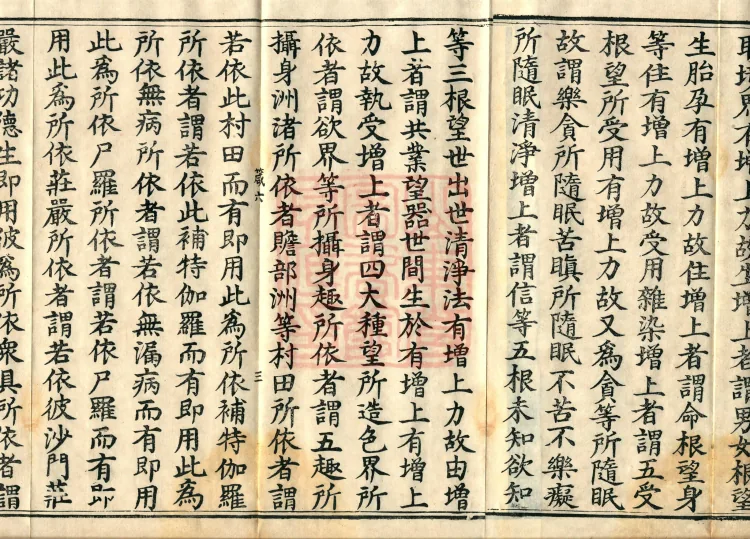 取境界有增上力故生增上者謂男女根望
生胎孕有增上力故住增上者謂命根望身
等住有增上力故受用雜染增上者謂五受
根望所受用有增上力故又爲貪等所隨眠
故謂樂貪所隨眠苦瞋所隨眠不苦不樂癡
所隨眠清淨增上者謂信等五根未知欲知
等三根望世出世清淨法有增上力故由增
上者謂共業望器世間生於有增上有增上
力故執受增上者謂四大種望所造色界所
依者謂欲界等所攝身趣所依者謂五趣所
攝身洲渚所依者贍部洲等村田所依者謂
箴六 三
若依此村田而有即用此爲所依補特伽羅
所依者謂若依此補特伽羅而有即用此爲
所依無病所依者謂若依無漏病而有即用
此爲所依尸羅所依者謂若依尸羅而有即
用此爲所依莊嚴所依者謂若依彼沙門莊
嚴諸功德生即用彼爲所依衆具所依者謂